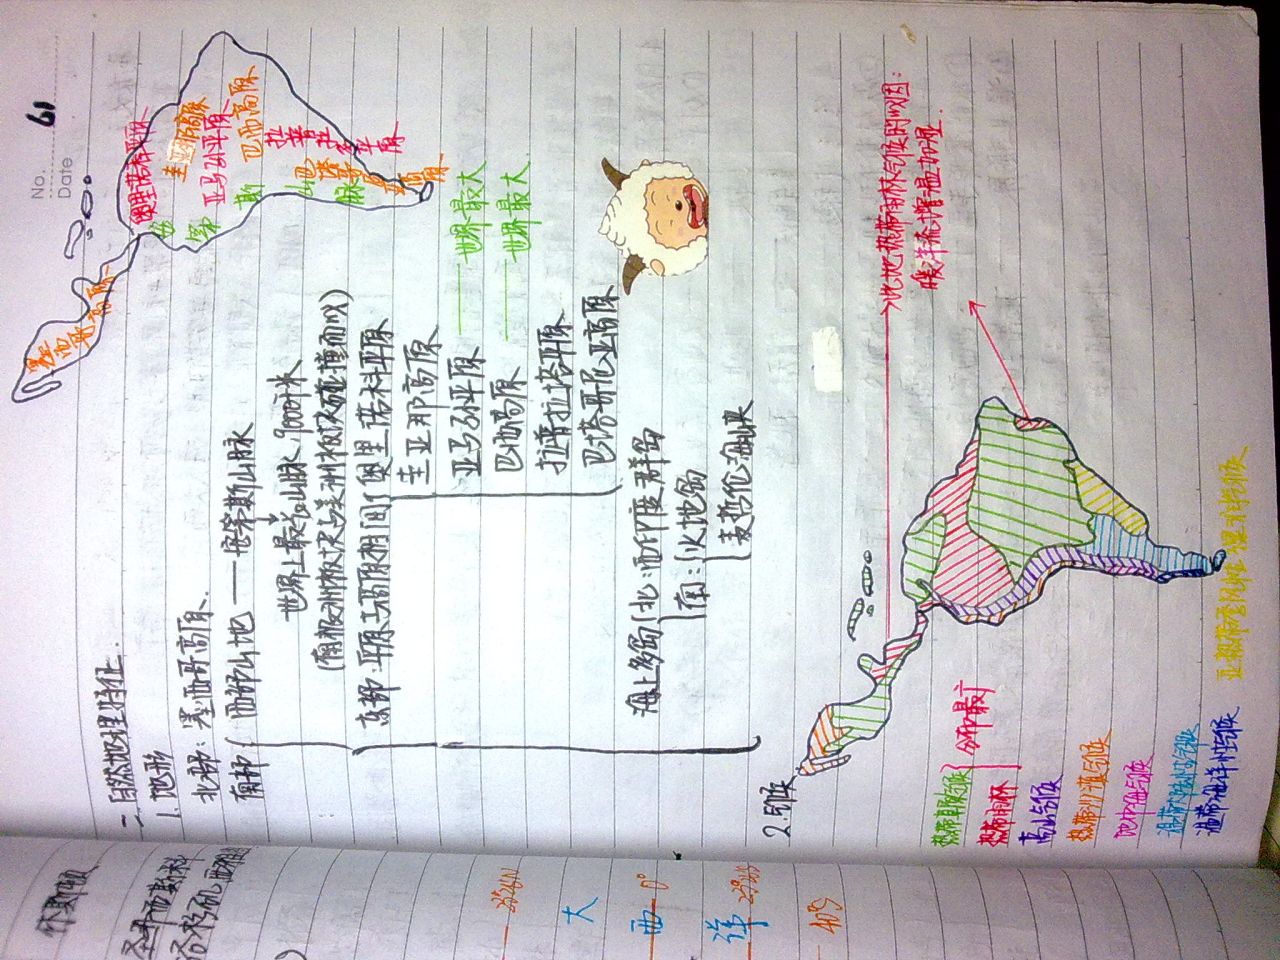 No. 61
Date
二.自然地理特征.
1.地形
北部:墨西哥高原.
南部
西部山地——安第斯山脉
世界上最长山脉.9000千米
(南极洲板块与美洲板块碰撞而成)
东部平原与高原相间
奥里诺科平原
圭亚那高原
亚马孙平原——世界最大
巴西高原——世界最大
拉普拉塔平原
巴塔哥尼亚高原
海上多岛
北:西印度群岛
南:火地岛
麦哲伦海峡
墨西哥高原
奥里诺科平原
圭亚那高原
亚马孙平原
巴西高原
安第斯山脉
拉普拉塔平原
巴塔哥尼亚高原
2.气候
此地热带雨林气候的成因:
暖洋流增温加湿.
热带草原气候
热带雨林
分布最广
高山气候
热带沙漠气候
地中海气候
温带大陆性气候
温带海洋性气候
亚热带季风性湿润气候
圣弗朗西斯科
洛杉矶
大
西
洋
0°
40°S